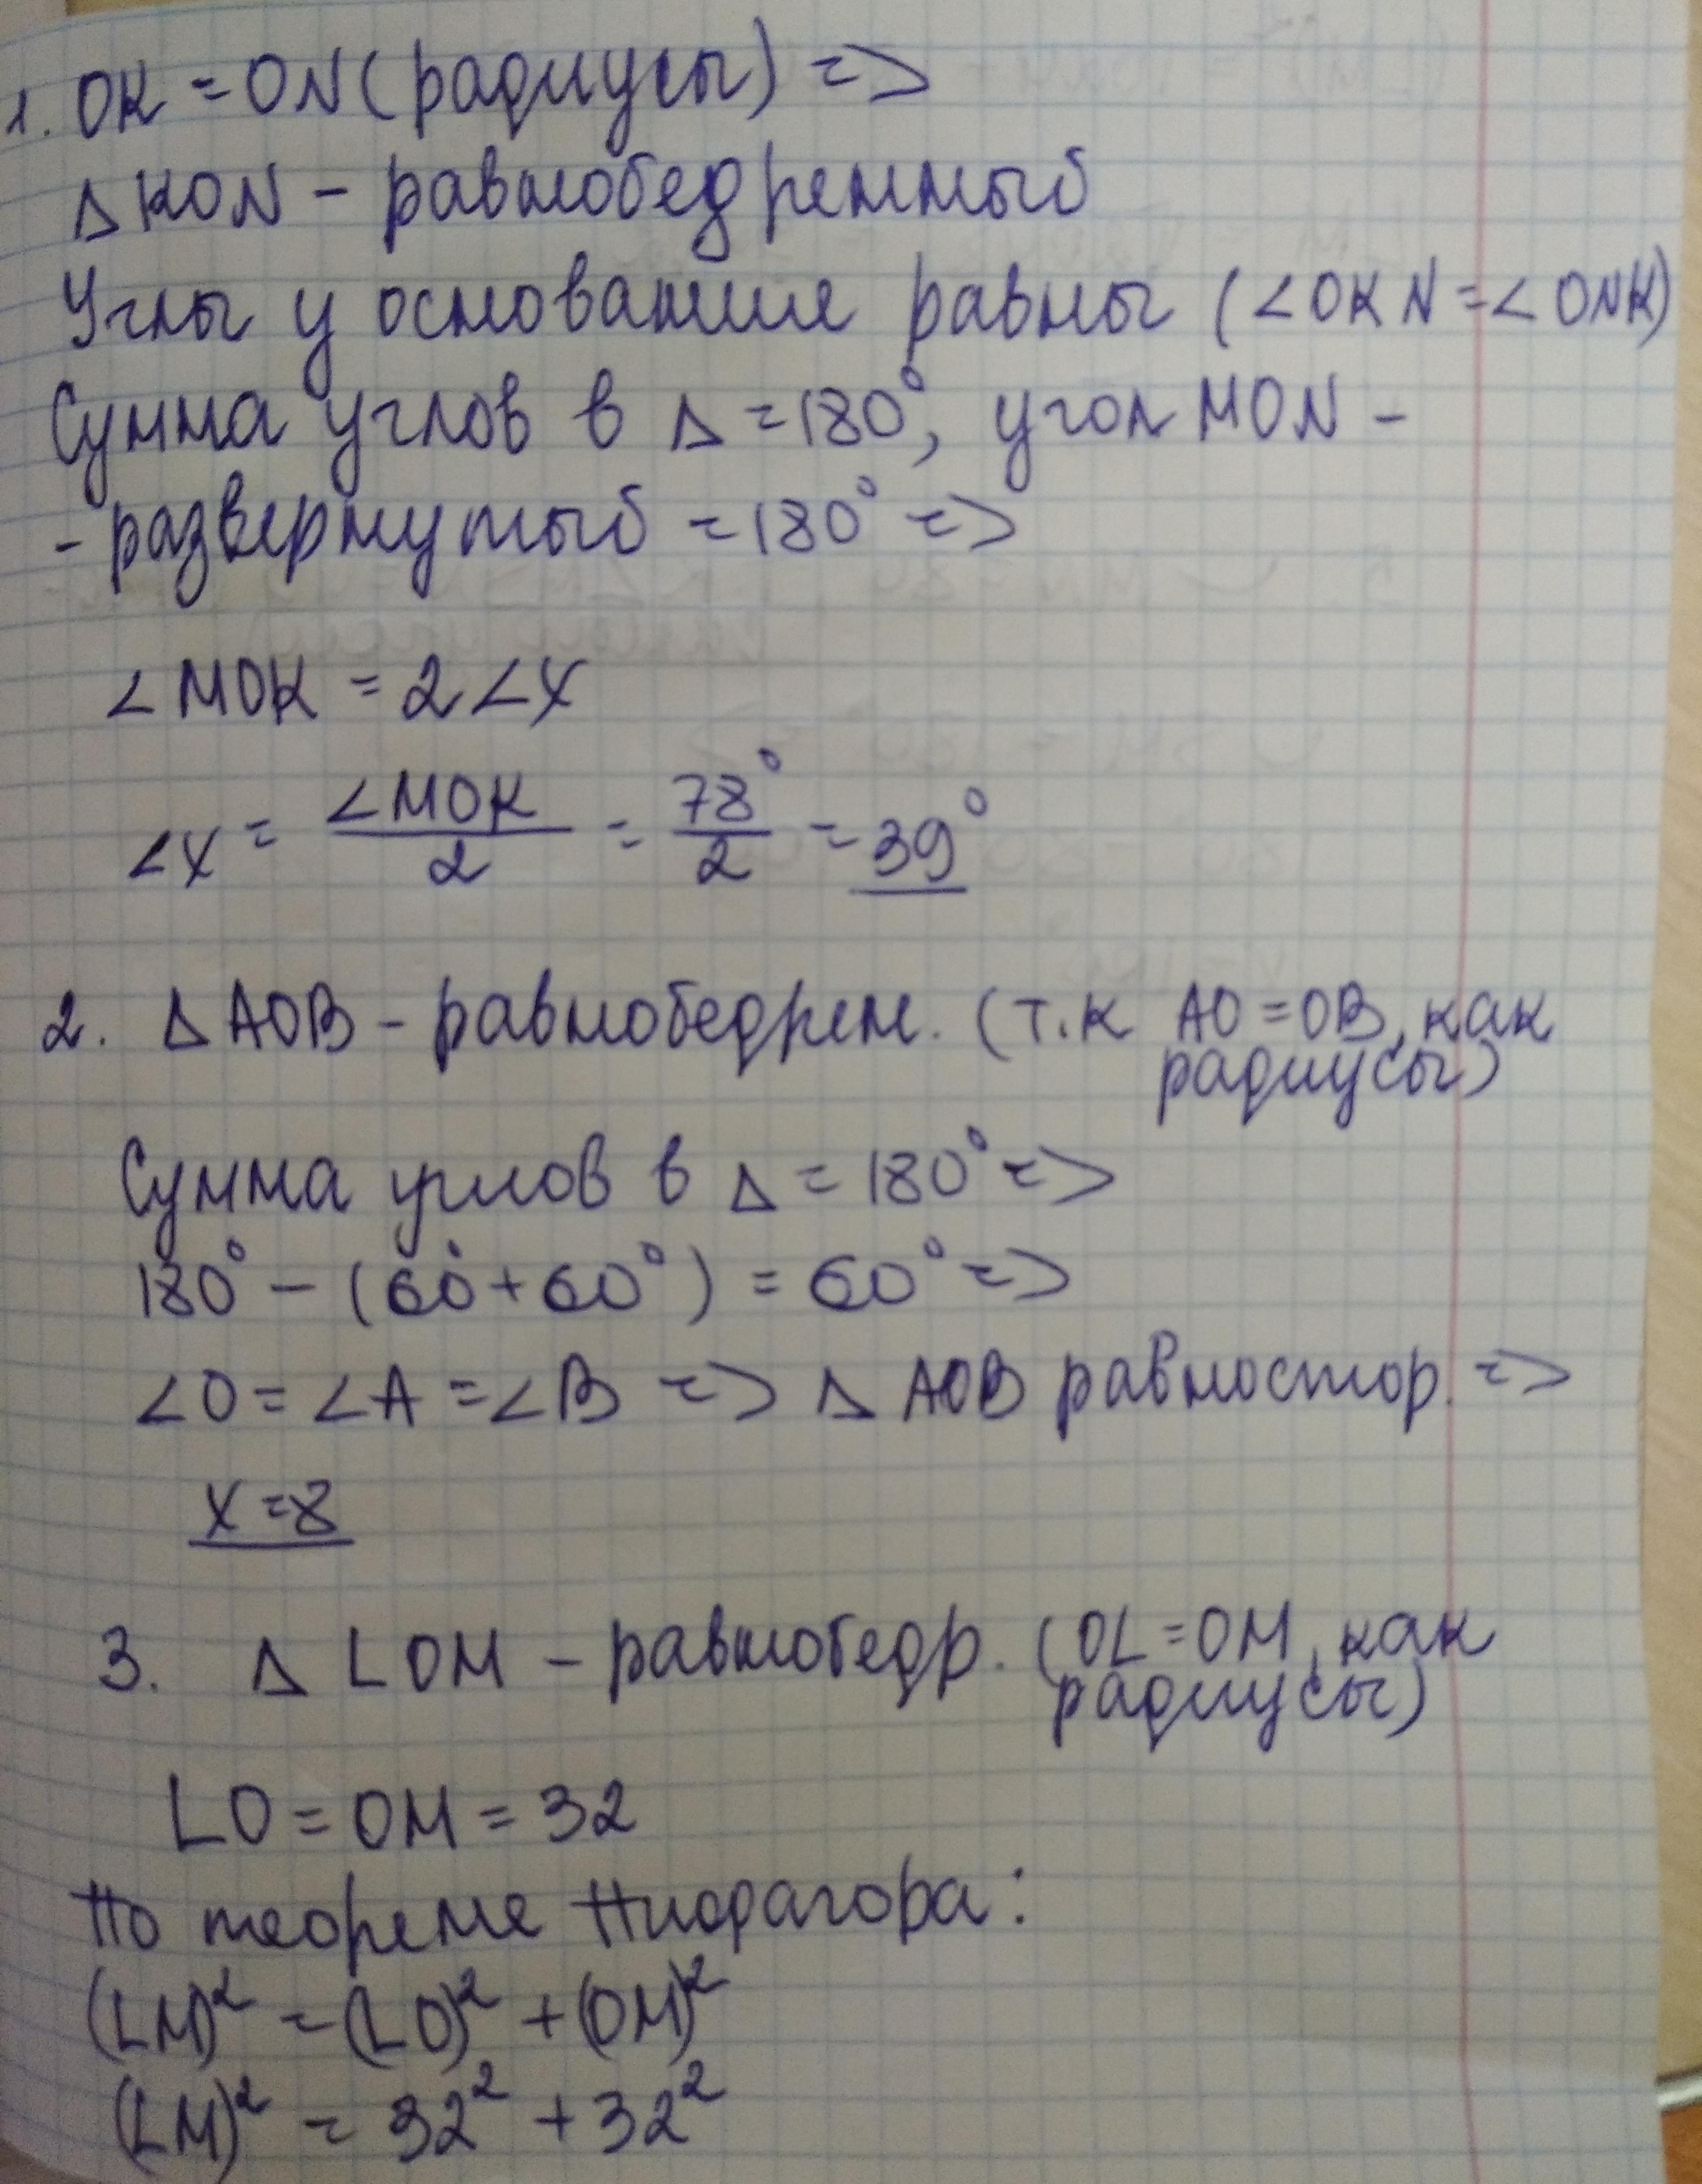 1. OK = ON (радиусы) =>
Δ KON - равнобедренный
Углы у основание равны (∠OKN = ∠ONK)
Сумма углов в Δ = 180°, угол MON -
- развернутый = 180° =>
∠MOK = 2∠X
∠X = ∠MOK/2 = 78°/2 = 39°
2. Δ AOB - равнобедрен. (т.к AO = OB, как
радиусы)
Сумма углов в Δ = 180° =>
180° - (60° + 60°) = 60° =>
∠O = ∠A = ∠B => Δ AOB равностор. =>
X = 8
3. Δ LOM - равнобедр. (OL = OM, как
радиусы)
LO = OM = 32
По теореме Пифагора:
(LM)² = (LO)² + (OM)²
(LM)² = 32² + 32²